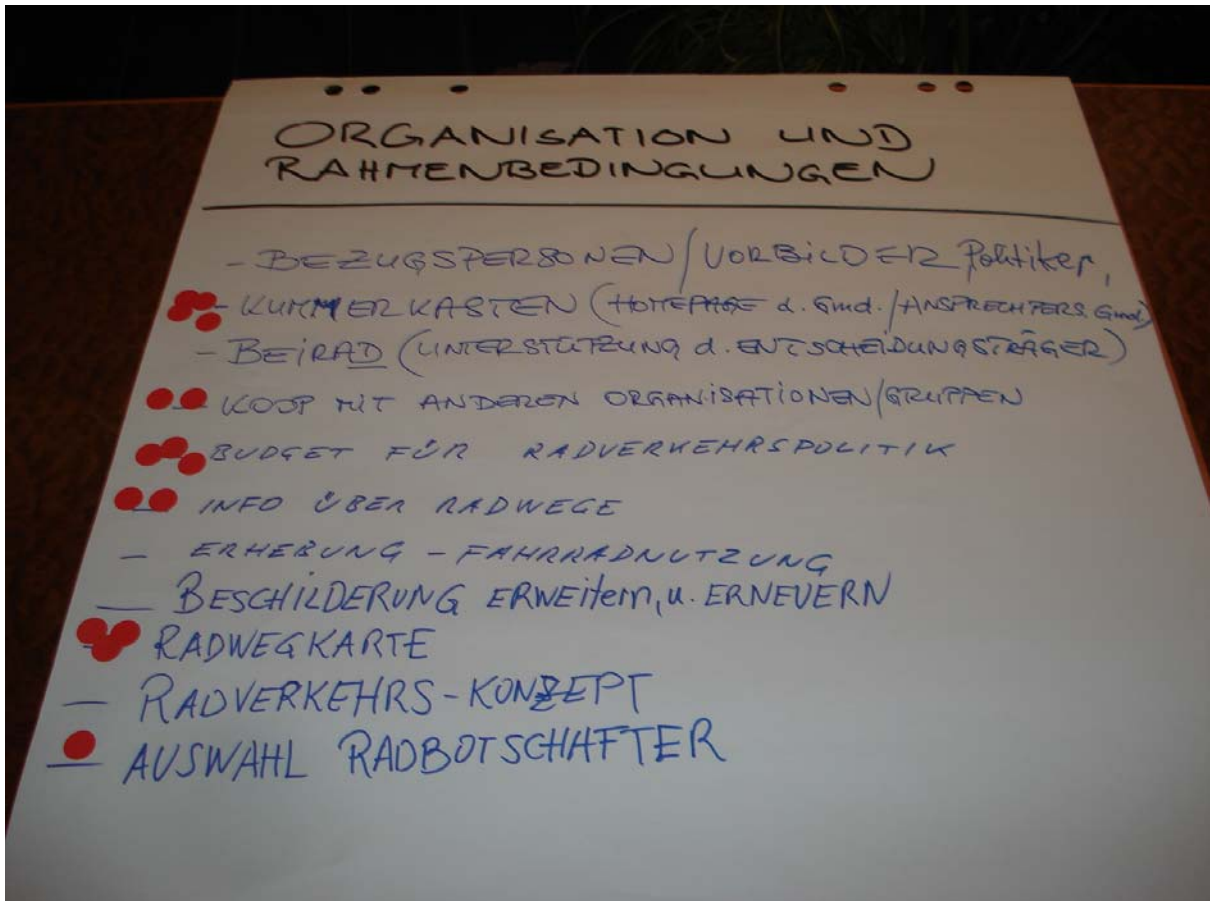 ORGANISATION UND
RAHMENBEDINGUNGEN
- BEZUGSPERSONEN/VORBILDER Politiker,
- KUMMERKASTEN (HOMEPAGE d. Gmd./ANSPRECHPERS. Gmd)
- BEIRAD (UNTERSTÜTZUNG d. ENTSCHEIDUNGSTRÄGER)
- KOOP MIT ANDEREN ORGANISATIONEN/GRUPPEN
BUDGET FÜR RADVERKEHRSPOLITIK
- INFO ÜBER RADWEGE
- ERHEBUNG - FAHRRADNUTZUNG
- BESCHILDERUNG ERWEITern, u. ERNEUERN
- RADWEGKARTE
- RADVERKEHRS-KONZEPT
- AUSWAHL RADBOTSCHAFTER